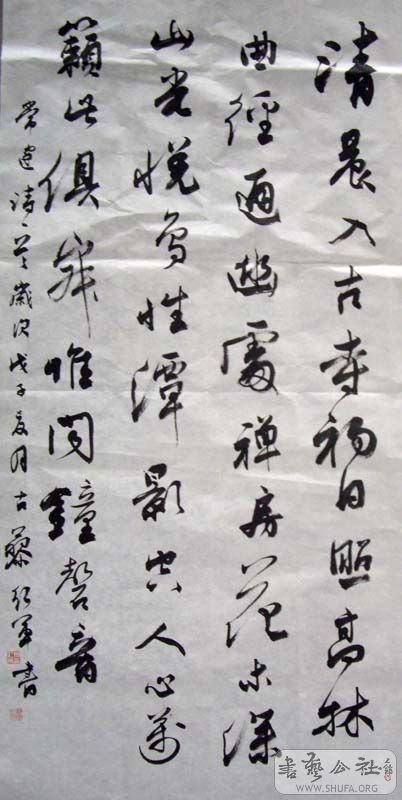 清晨入古寺初日照高林
曲徑通幽處禅房花木深
山光悦鸟性潭影空人心萬
籟此俱寂惟闻鐘磬音
常建詩一首歲次戊子夏月古軍書
書藝公社
WWW.SHUFA.ORG